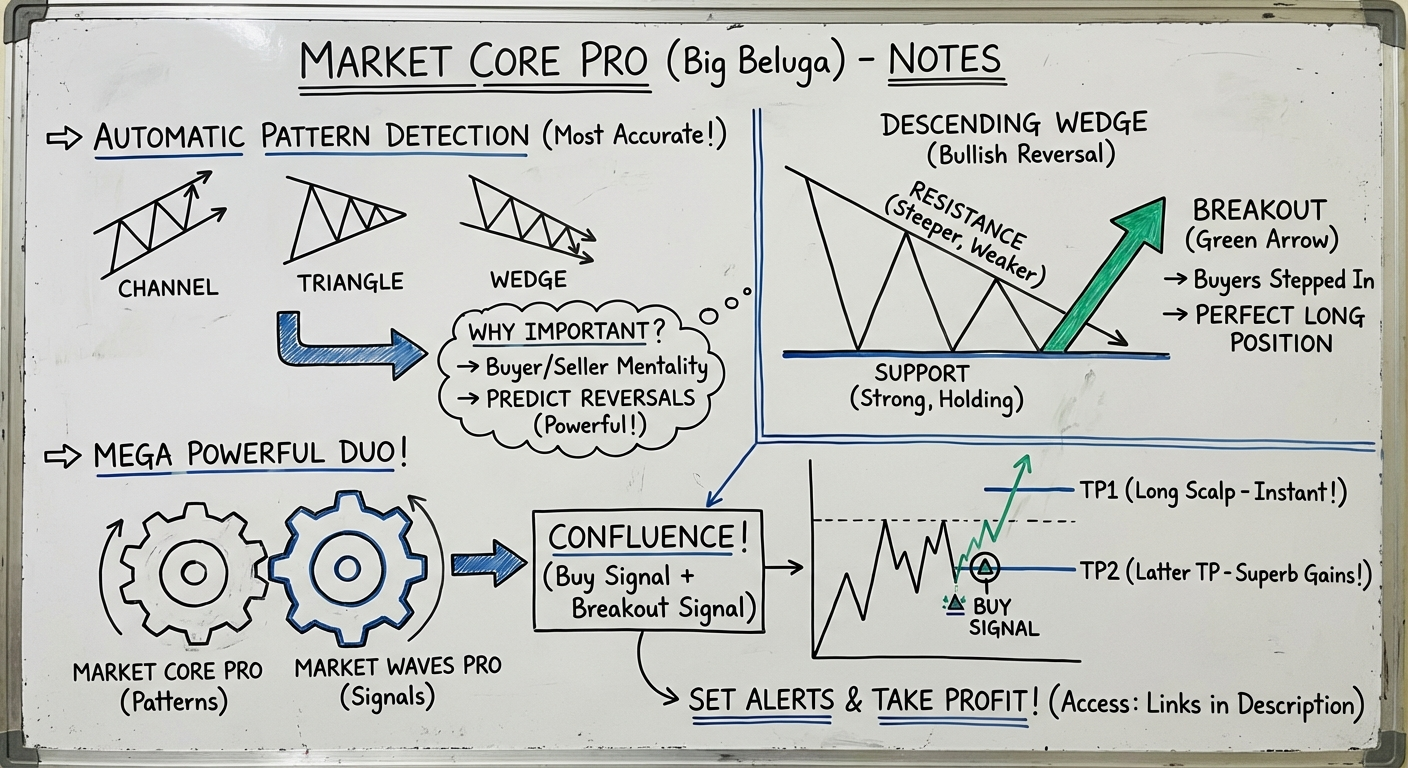 MARKET CORE PRO (Big Beluga) - NOTES
⇨ AUTOMATIC PATTERN DETECTION (Most Accurate!)
CHANNEL
TRIANGLE
WEDGE
WHY IMPORTANT?
→ Buyer/Seller Mentality
→ PREDICT REVERSALS
(Powerful!)
DESCENDING WEDGE
(Bullish Reversal)
RESISTANCE
(Steeper, Weaker)
SUPPORT
(Strong, Holding)
BREAKOUT
(Green Arrow)
→ Buyers Stepped In
→ PERFECT LONG
POSITION
⇨ MEGA POWERFUL DUO!
MARKET CORE PRO
(Patterns)
MARKET WAVES PRO
(Signals)
CONFLUENCE!
(Buy Signal +
Breakout Signal)
TP1 (Long Scalp - Instant!)
TP2 (Latter TP - Superb Gains!)
BUY
SIGNAL
SET ALERTS & TAKE PROFIT! (Access: Links in Description)